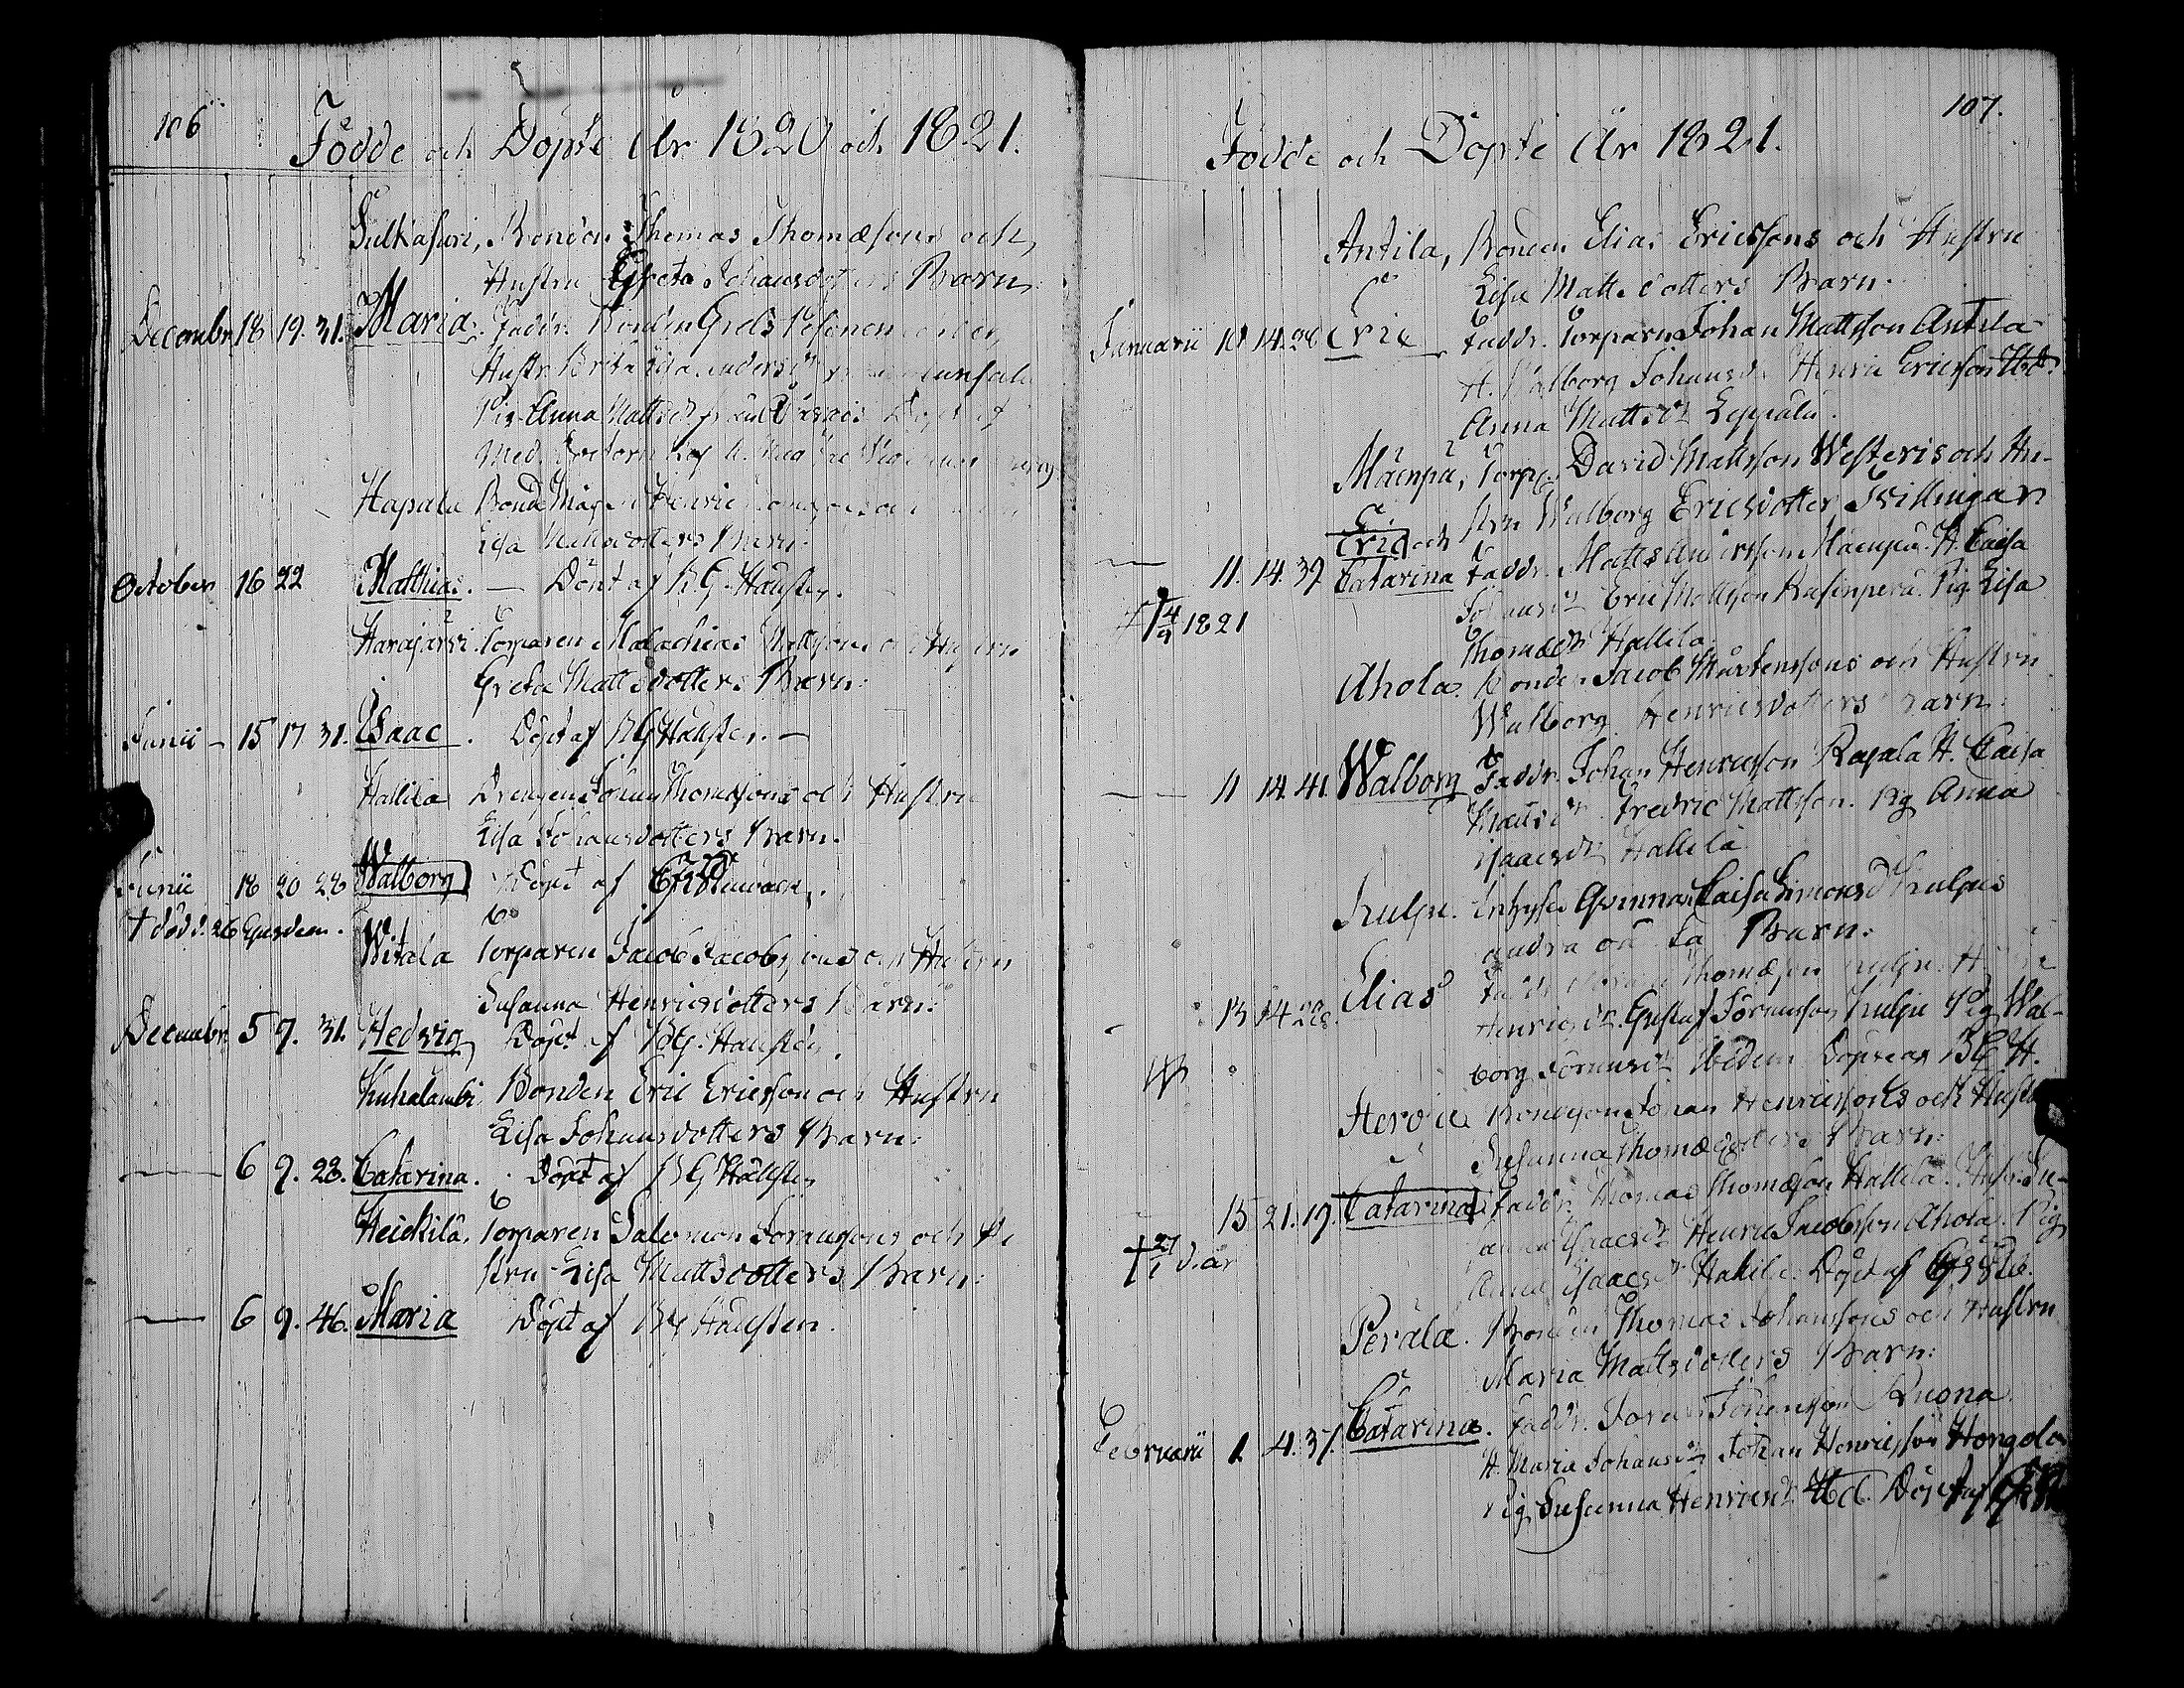 106
Födde och Döpte År 1820 och 1821.
Sulkasuri, Bonden Thomas Thomæsons och
Hustru Greta Johansdotters Barn
Decembr 18 19. 31. Maria. Faddr. Bonden Grels
Hustr. Brita
Pig. Anna Mattsdr
Med.
Hapala Bonde Mågen Henric
Lisa Mattsdotters Barn:
October 16 22 Matthias. — Döpt af B. G. Hausten.
Harajärvi. Torparen Malachias Mattsons och Hustru
Greta Mattsdotters Barn:
Junii — 15 17 31. Isaac. Döpt af BG Hausten. —
Hallila Drengen Johan Thomæsons och Hustru
Lisa Johansdotters Barn.
Junii 18 20 28 Walborg Döpt af
† död d. 26 Ejusdem.
Witala Torparen Jacob Jacobssons och Hustru
Susanna Henricsdotters Barn:
Decembr 5 7. 31. Hedvig Döpt af BG. Hausten.
Kuhalambi Bonden Eric Ericsson och Hustru
Lisa Johansdotters Barn:
— 6 9. 28. Catarina. Döpt af BG Hausten
Heickilä. Torparen Salomon Göransons och Hu
stru Lisa Mattsdotters Barn:
— 6 9. 46. Maria Döpt af BG Hausten.
107.
Födde och Döpte År 1821.
Antila, Bonden Elias Ericssons och Hustru
Lisa Mattsdotters Barn.
Januarii 10 14. 28 Eric Faddr. Torparn Johan Mattsson Antila
H. Walborg Johansdr Henric Ericsson Ibd.
Anna Mattsdr Leppälä.
Mäenpä, Torp. David Mattsson Westeris och Hu-
stru Walborg Ericsdotter Tvillingar
Eric och
— 11. 14. 39. Catarina Faddr. Matts Andersson Mäenpä. H. Caisa
Johansdr Eric Mattsson Pig. Lisa
† 4/9 1821
Thomædr Hallila.
Ahola. Bonden Jacob Mårtenssons och Hustru
Walborg Henricsdotters Barn.
— — 11 14. 41. Walborg Faddr. Johan Henricsson Rapala H. Caisa
Mattsdr Fredric Mattsson. Pig Anna
Isaacsdr Hallila
Kulpu. Inhyses Qvinnan Caisa Simonsd Kulpus
andra oä Barn:
13 14 28. Elias Faddr. Thomæson Kulpu. H.
Henricsdr. Gustaf Göransson Kulpu Pig Wal-
borg Göransdr Ibidem Döptes af BGH.
Hervie Bondesonen Johan Henricssons och Hustr
Susanna Thomædotters Barn:
15 21. 19. Catarina Faddr. Thomas Thomæson Hallila. Hustr. Su-
sanna Isaacsdr Henric Jacobsson Ahola. Pig
† 27/1 d. år
Anna Isaacsdr Hallila. Döpt af
Perälä. Bonden Thomas Johanssons och Hustru
Maria Mattsdotters Barn:
Februarii 1. 4. 37. Catarina. Faddr. Göran Johansson Ruona.
H. Maria Johansdr Johan Henricsson Hongola
Pig Susanna Henricsdr Ibd. Döpt af